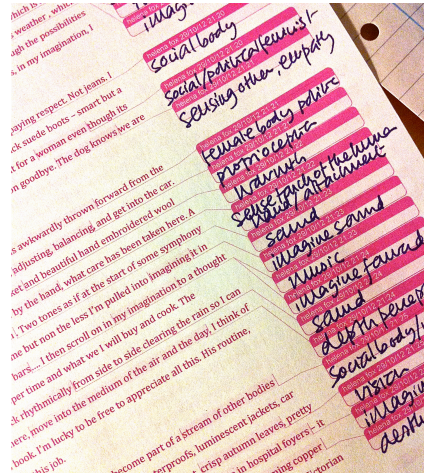 which is
weather', which
ugh the possibilities
s, in my imagination, I
paying respect. Not jeans. I
ck suede boots – smart but a
t for a woman even though its
on goodbye. The dog knows we are
s awkwardly thrown forward from the
adjusting, balancing, and get into the car.
et and beautiful hand embroidered wool
by the hand. what care has been taken here. A
l. Two tones as if at the start of some symphony
me but non the less I'm pulled into imagining it in
bars.... I then scroll on in my imagination to a thought
per time and what we I will buy and cook. The
ck rhythmically from side to side clearing the rain so I can
here, move into the medium of the air and the day, I think of
book. I'm lucky to be free to appreciate all this. His routine,
his job.
become part of a stream of other bodies
terproofs, luminescent jackets, car
crisp autumn leaves, pretty
in hospital foyers - it
ning copper
torian
helena fox 29/10/12 21:20
social body
helena fox 29/10/12 21:20
social/political/
helena fox 29/10/12 21:21
sensing other, empathy
helena fox 29/10/12 21:21
female body politic
helena fox 29/10/12 21:22
proprioception
helena fox 29/10/12 21:22
warmth
helena fox 29/10/12 21:22
sense touch of the human
attachment
sound
helena fox 29/10/12 21:23
imagine sound
helena fox 29/10/12 21:23
music
helena fox 29/10/12 21:24
imagine forward
sound
helena fox 29/10/12 21:24
depth percep
social body/
helena fox 29/10/12 21:25
vision
helena fox 29/10/12
imagine
helena fox 29/10
aesth